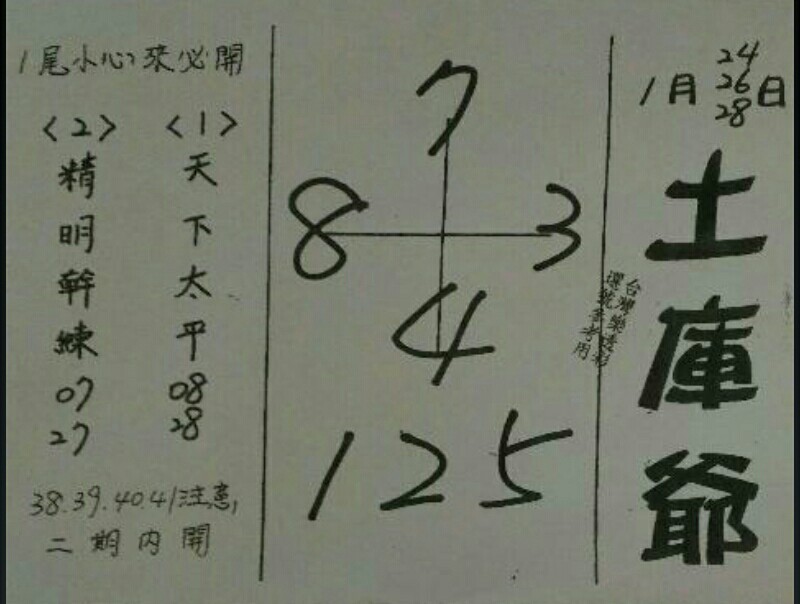 1月24 26 28日
土庫爺
台灣樂透彩
選號參考用
7
8 3
4
125
1尾小心來必開
〈1〉
天下太平
08
28
〈2〉
精明幹練
07
27
38.39.40.41注意,
二期內開